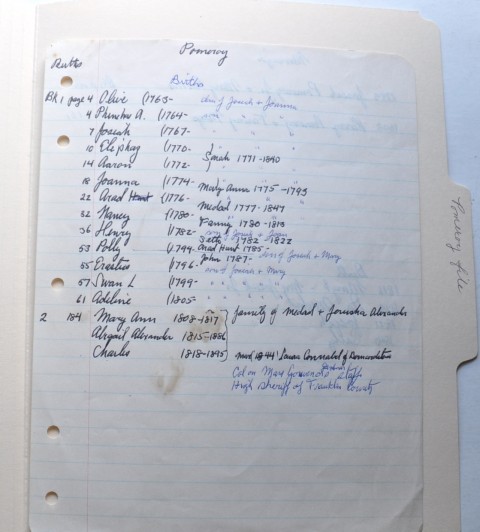 Pomeroy
Births
Bk 1 page 4 Olive (1763- dau of Josiah + Joanna
4 Phineha A. (1764- " "
7 Josiah (1767- " "
10 Eliphaz (1770- " "
14 Aaron (1772- Sarah 1771-1840
18 Joanna (1774- Mary Ann 1775-1795
22 Arad Hunt (1776- Medad 1777-1847
32 Nancy (1780- Fanny 1780-1813
36 Henry (1782- Seth 1782-1822
53 Polly (1794- Arad Hunt 1785-
55 Erastus (1796- John 1787- son of Josiah + Mary
son of Josiah + Mary
57 Swan L (1799-
61 Adeline (1805-
2 184 Mary Ann 1808-1817 family of Medad + Jerusha Alexander
Abigail Alexander 1815-1886
Charles 1818-1895 of Bernardston
Col on Mass Governor's Staff
High Sheriff of Franklin County
Pomeroy file